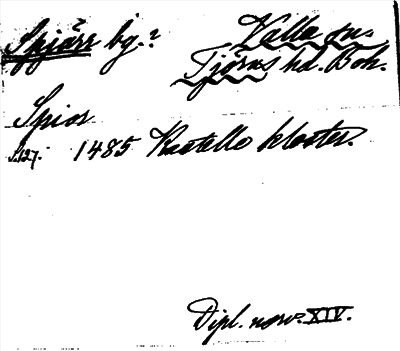 Spjärr by.? Valla sn.
Tjörns hd. Boh.
Spior
s.127. 1485 Kastelle kloster.
Dipl. norv. XIV.